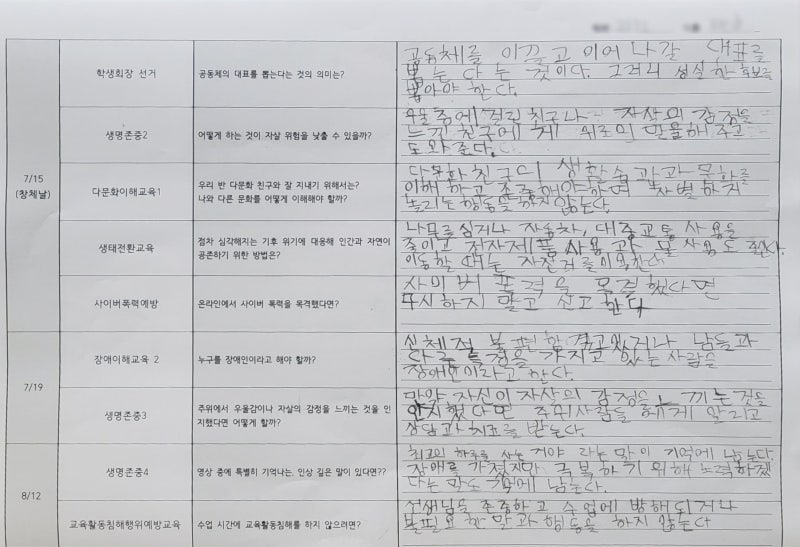 학생회장 선거
공동체의 대표를 뽑는다는 것의 의미는?
공동체를 이끌고 이어 나갈 대표를
뽑는 다는 것이다. 그러니 성실한 후보를
뽑아야 한다.
7/15
(창체날)
생명존중2
어떻게 하는 것이 자살 위험을 낮출 수 있을까?
우울증에 걸린 친구나 자살의 감정을
느낀 친구에게 위로의 말을 해 주고
도와준다.
다문화이해교육1
우리 반 다문화 친구와 잘 지내기 위해서는?
나와 다른 문화를 어떻게 이해해야 할까?
다문화 친구의 생활습관과 문화를
이해 하고 존중해야하며 차별하지
놀리는 행동을 하지 않는다.
생태전환교육
점차 심각해지는 기후 위기에 대응해 인간과 자연이
공존하기 위한 방법은?
나무를 심거나 자동차, 대중교통 사용을
줄이고 전자제품 사용과 물 사용도 줄인다.
이동할 때는 자전거를 이용한다
사이버폭력예방
온라인에서 사이버 폭력을 목격했다면?
사이버 폭력을 목격했다면
무시하지 말고 신고한다
7/19
장애이해교육 2
누구를 장애인이라고 해야 할까?
신체적 불편함을 겪고있거나 남들과
다른 특징을 가지고 있는 사람을
장애인이라고 한다.
생명존중3
주위에서 우울감이나 자살의 감정을 느끼는 것을 인
지했다면 어떻게 할까?
만약 자신이 자살의 감정을 느끼는 것을
인지했다면 주위사람들에게 알리고
상담과 치료를 받는다.
8/12
생명존중4
영상 중에 특별히 기억나는, 인상 깊은 말이 있다면??
최고의 하루를 사는 거야 라는 말이 기억에 남는다.
장애를 가졌지만 극복하기 위해 노력하겠
다는 말도 기억에 남는다.
교육활동침해행위예방교육
수업 시간에 교육활동침해를 하지 않으려면?
선생님을 존중하고 수업에 방해되거나
불필요한 말과 행동을 하지 않는다